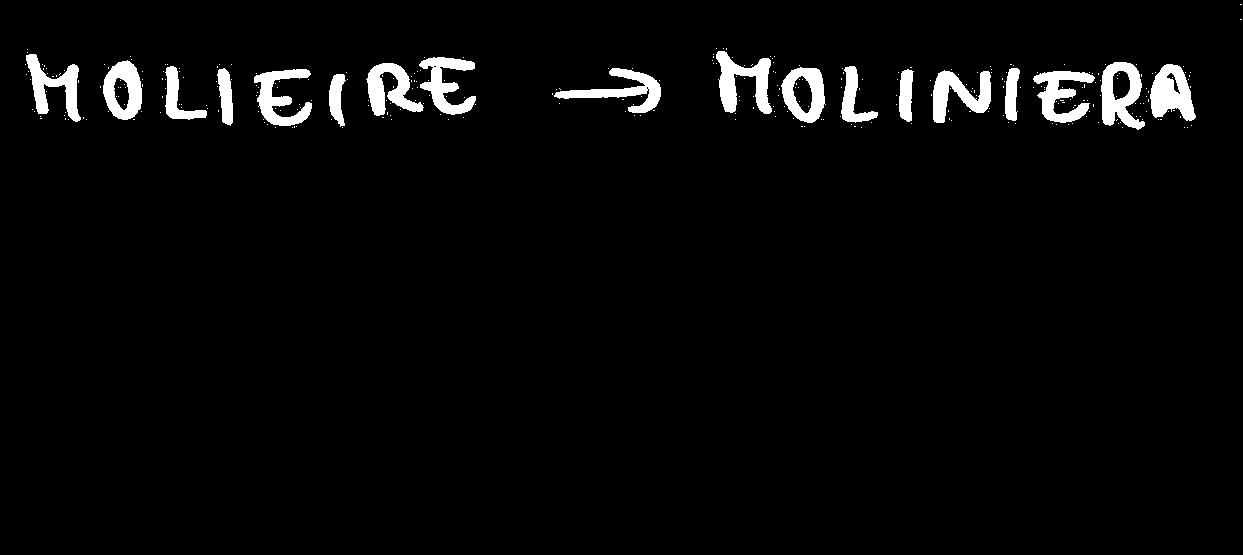 MOLIEIRE → MOLINIERA